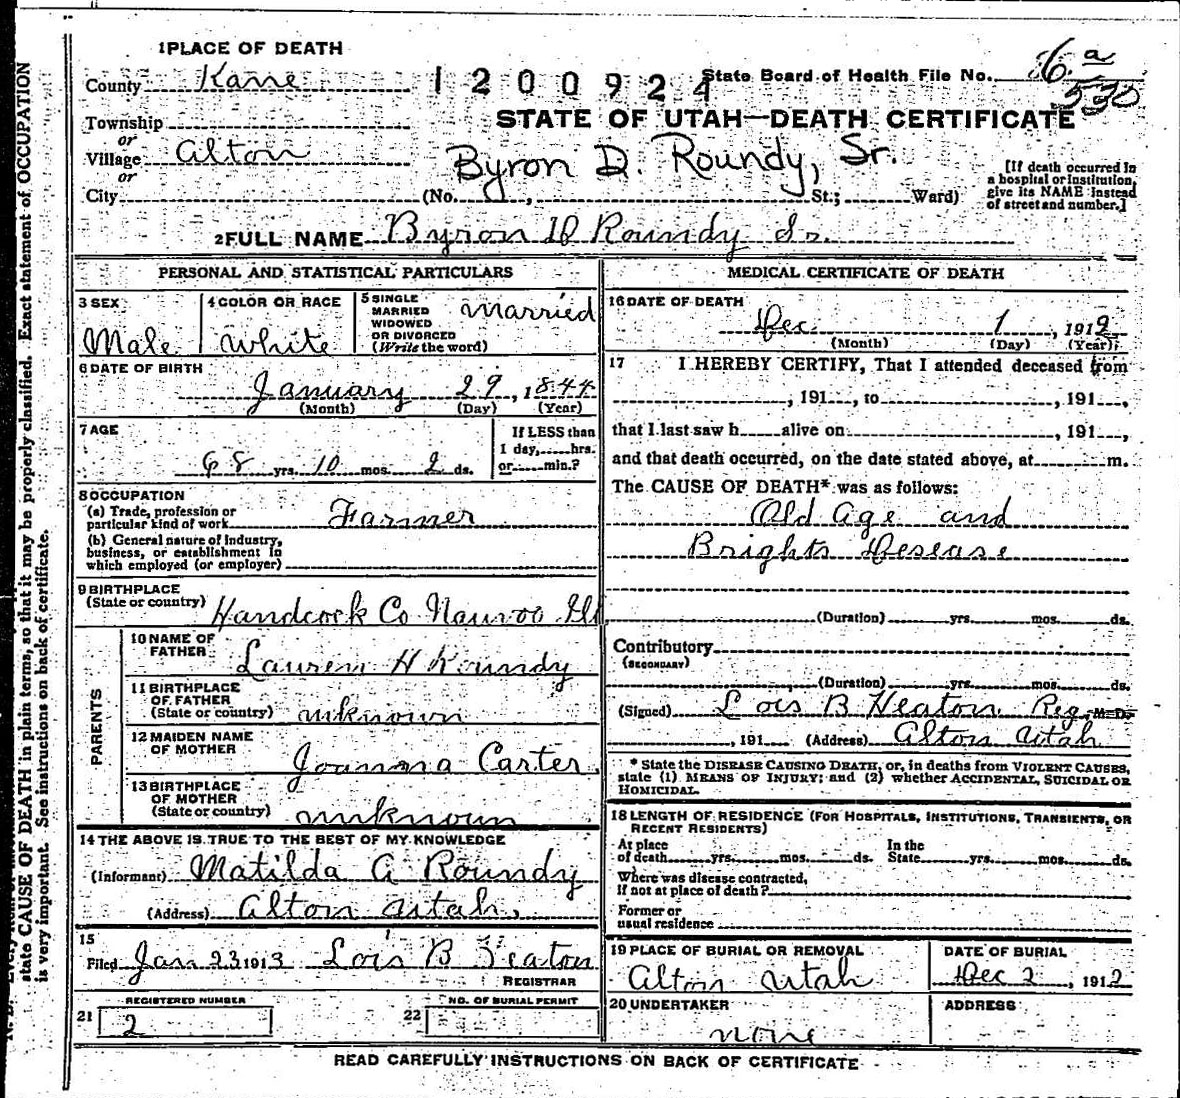 1 PLACE OF DEATH
County Kane
1200924
State Board of Health File No. 6 a
530
STATE OF UTAH—DEATH CERTIFICATE
Township
or
Village Alton
or
City
Byron D. Roundy, Sr.
(No. , St.; Ward)
[If death occurred in
a hospital or institution,
give its NAME instead
of street and number.]
2 FULL NAME Byron D Roundy Sr.
PERSONAL AND STATISTICAL PARTICULARS
3 SEX
Male
4 COLOR OR RACE
White
5 SINGLE
MARRIED
WIDOWED
OR DIVORCED
(Write the word)
Married
6 DATE OF BIRTH
January 29, 1844
(Month) (Day) (Year)
7 AGE
68 yrs. 10 mos. 2 ds.
If LESS than
1 day, hrs.
or min.?
8 OCCUPATION
(a) Trade, profession or
particular kind of work Farmer
(b) General nature of industry,
business, or establishment in
which employed (or employer)
9 BIRTHPLACE
(State or country) Handcock Co Nauvoo Ill
PARENTS
10 NAME OF
FATHER Lauren H Roundy
11 BIRTHPLACE
OF FATHER
(State or country) unknown
12 MAIDEN NAME
OF MOTHER
Joanna Carter
13 BIRTHPLACE
OF MOTHER
(State or country) unknown
14 THE ABOVE IS TRUE TO THE BEST OF MY KNOWLEDGE
(Informant) Matilda A Roundy
(Address) Alton Utah.
15
Filed Jan 23 1913 Lois B Heaton
REGISTRAR
REGISTERED NUMBER
21 2
NO. OF BURIAL PERMIT
22
MEDICAL CERTIFICATE OF DEATH
16 DATE OF DEATH
Dec. 1, 1912
(Month) (Day) (Year)
17 I HEREBY CERTIFY, That I attended deceased from
, 191 , to , 191 ,
that I last saw h alive on , 191 ,
and that death occurred, on the date stated above, at m.
The CAUSE OF DEATH* was as follows:
Old Age and
Brights Desease
(Duration) yrs. mos. ds.
Contributory
(SECONDARY)
(Duration) yrs. mos. ds.
(Signed) Lois B Heaton Reg. M.D.
, 191 (Address) Alton Utah
* State the DISEASE CAUSING DEATH, or, in deaths from VIOLENT CAUSES,
state (1) MEANS OF INJURY; and (2) whether ACCIDENTAL, SUICIDAL OR
HOMICIDAL.
18 LENGTH OF RESIDENCE (FOR HOSPITALS, INSTITUTIONS, TRANSIENTS, OR
RECENT RESIDENTS)
At place
of death yrs. mos. ds.
In the
State yrs. mos. ds.
Where was disease contracted,
if not at place of death?
Former or
usual residence
19 PLACE OF BURIAL OR REMOVAL
Alton Utah
DATE OF BURIAL
Dec 2, 1912
20 UNDERTAKER
none
ADDRESS
READ CAREFULLY INSTRUCTIONS ON BACK OF CERTIFICATE
state CAUSE OF DEATH in plain terms, so that it may be properly classified. Exact statement of OCCUPATION
is very important. See instructions on back of certificate.